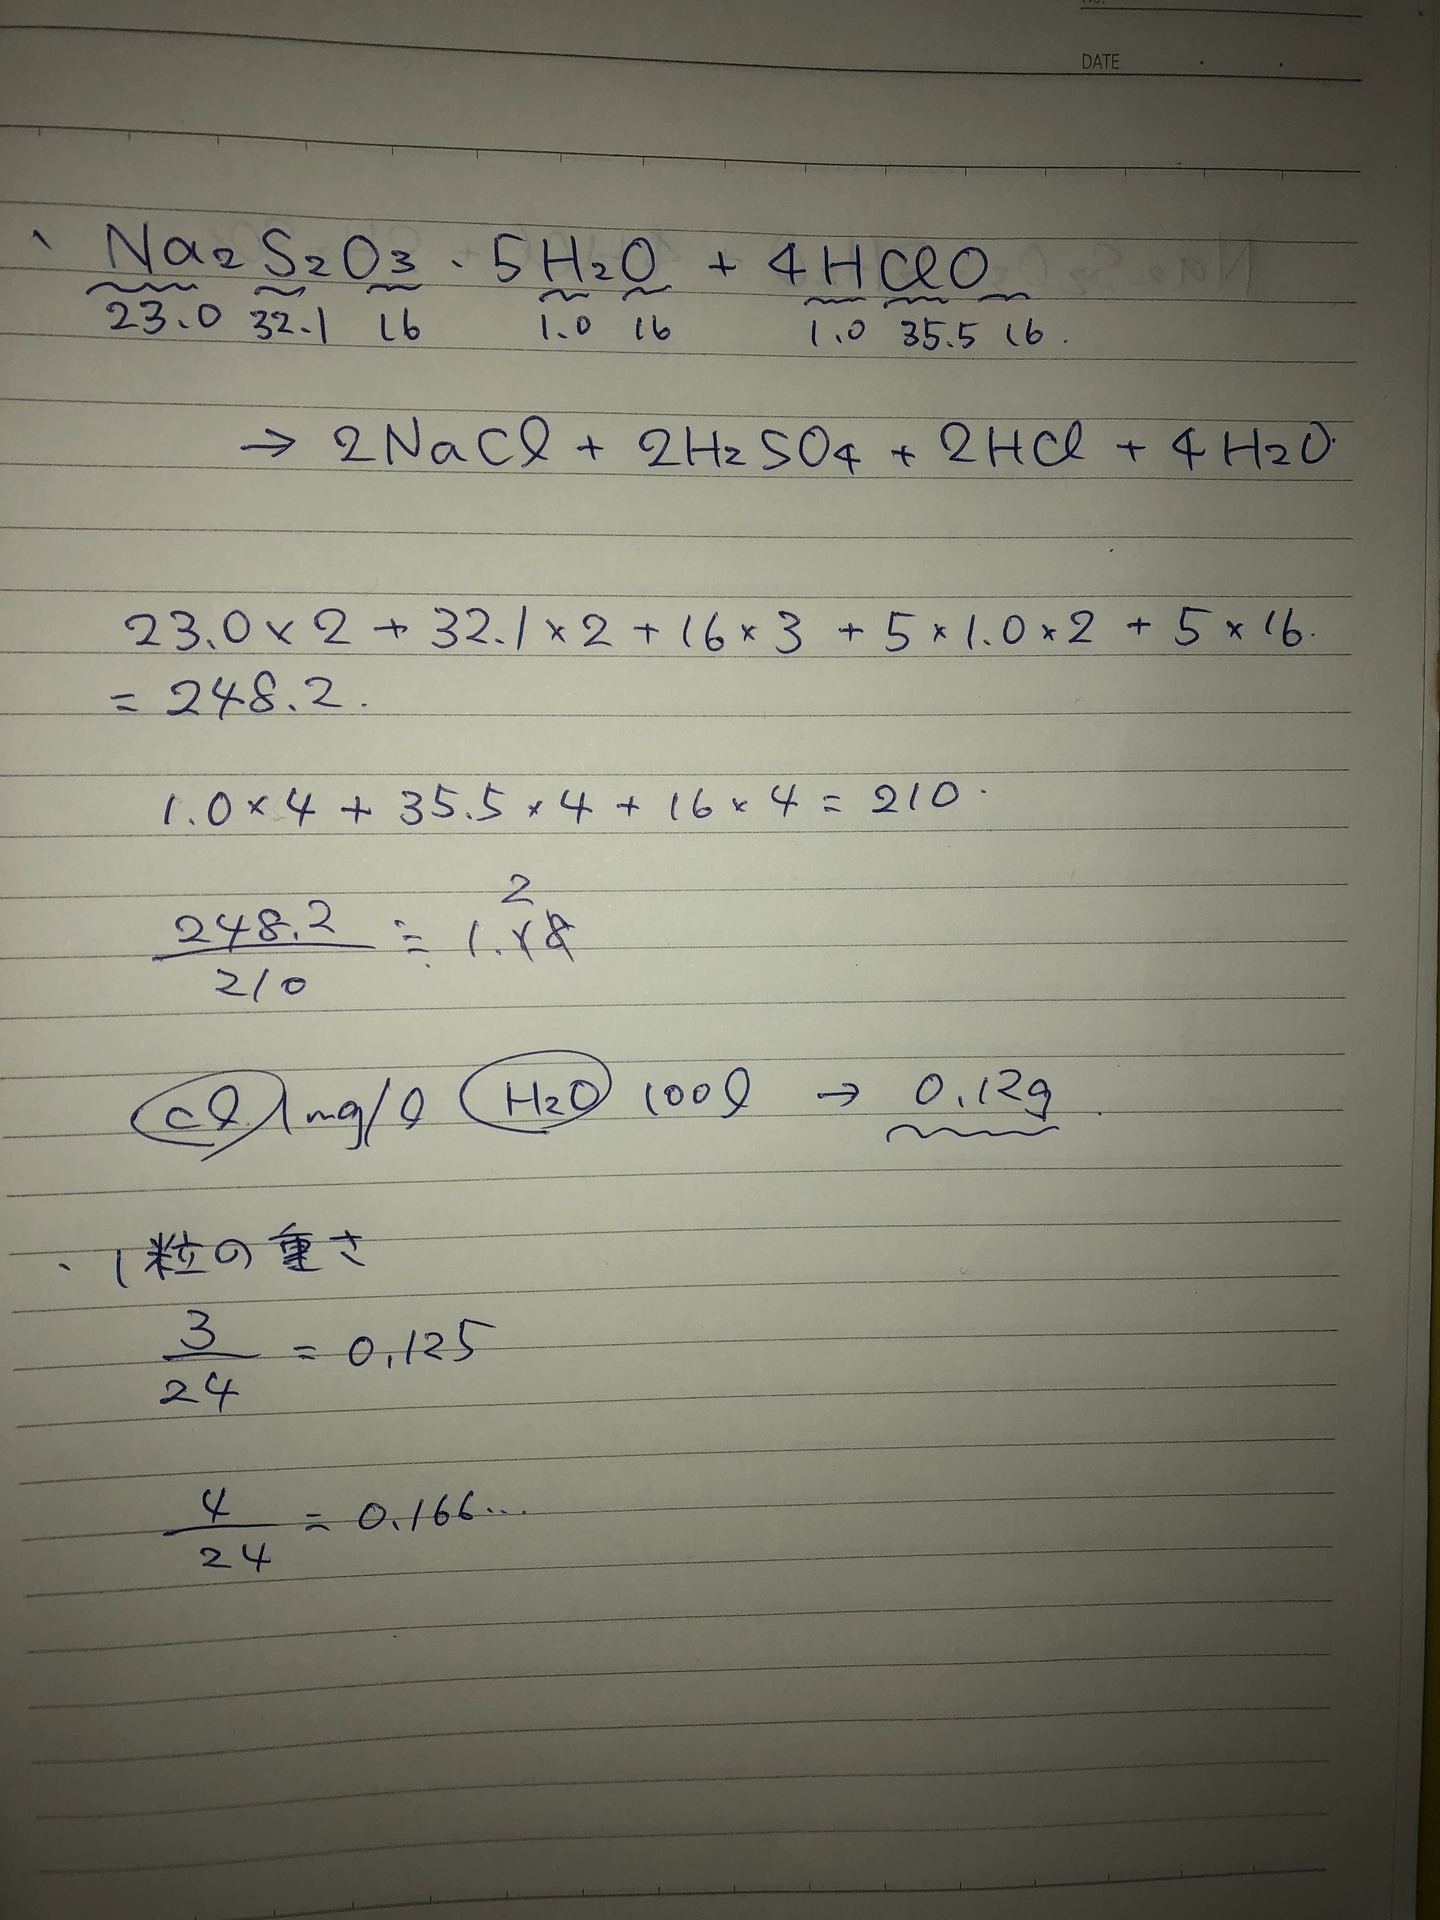 DATE
Na2S2O3・5H2O + 4HClO
23.0 32.1 16 1.0 16 1.0 35.5 16.
→ 2NaCl + 2H2SO4 + 2HCl + 4H2O
23.0×2+32.1×2+16×3+5×1.0×2+5×16.
=248.2.
1.0×4+35.5×4+16×4=210.
248.2/210 ≒ 1.18 2
Cl 1mg/l H2O 100l → 0.12g
・1粒の重さ
3/24 = 0.125
4/24 = 0.166...